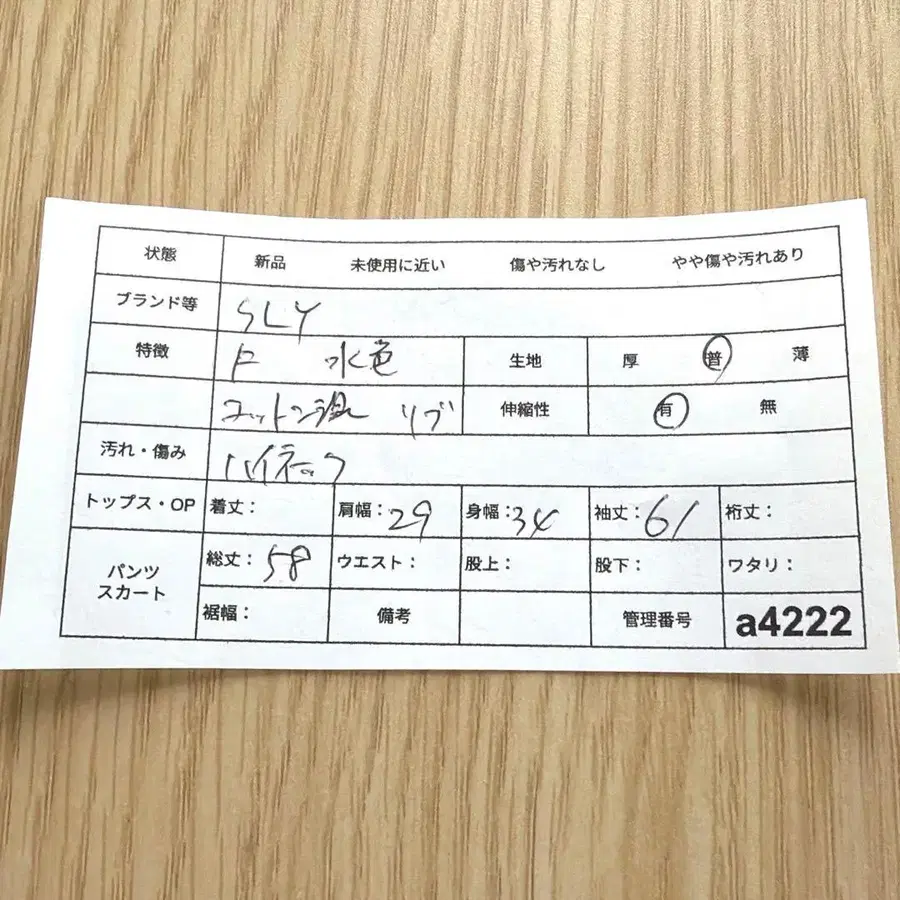 状態 新品 未使用に近い 傷や汚れなし やや傷や汚れあり
ブランド等 SLY
特徴 F 水色 生地 厚 普 薄
コットン混 リブ 伸縮性 有 無
汚れ・傷み ハイネック
トップス・OP 着丈: 肩幅:29 身幅:34 袖丈:61 裄丈:
パンツ スカート 総丈:58 ウエスト: 股上: 股下: ワタリ:
裾幅: 備考 管理番号 a4222